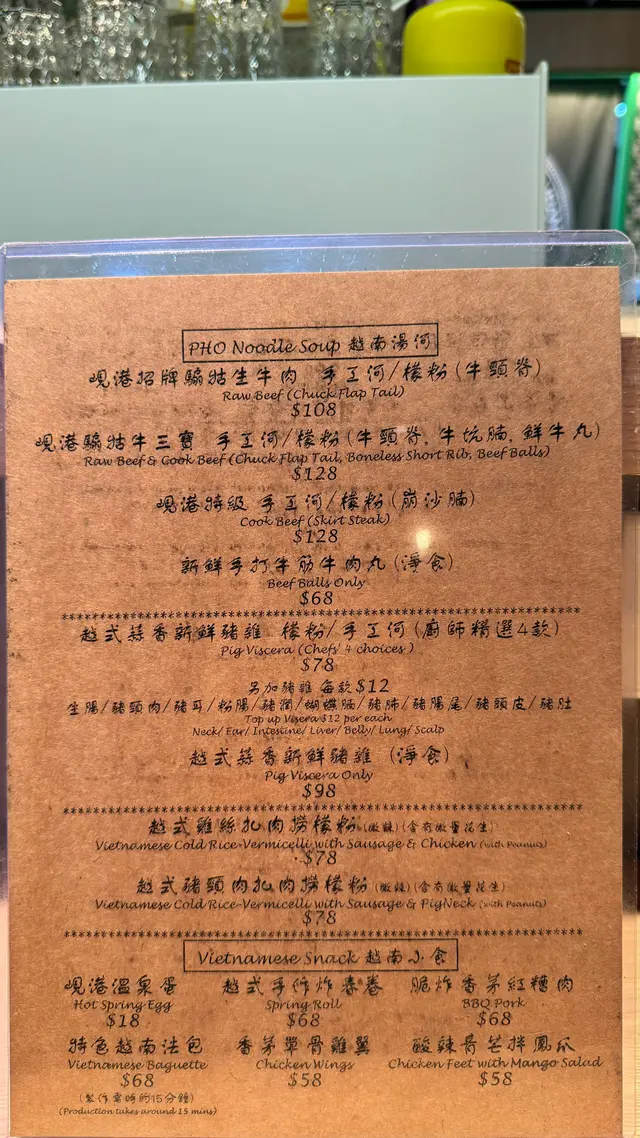 PHO Noodle Soup 越南湯河
峴港招牌騸牯生牛肉 手工河/檬粉(牛頸脊)
Raw Beef (Chuck Flap Tail)
$108
峴港騸牯牛三寶 手工河/檬粉(牛頸脊, 牛坑腩, 鮮牛丸)
Raw Beef & Cook Beef (Chuck Flap Tail, Boneless Short Rib, Beef Balls)
$128
峴港特級 手工河/檬粉(崩沙腩)
Cook Beef (Skirt Steak)
$128
新鮮手打牛筋牛肉丸(淨食)
Beef Balls Only
$68
越式蒜香新鮮豬雜 檬粉/手工河(廚師精選4款)
Pig Viscera (Chefs' 4 choices )
$78
另加豬雜 每款$12
生腸/豬頸肉/豬耳/粉腸/豬潤/蝴蝶腩/豬肺/豬腸尾/豬頭皮/豬肚
Top up Visera $12 per each
Neck/ Ear/ Intestine/ Liver/ Belly/ Lung/ Scalp
越式蒜香新鮮豬雜 (淨食)
Pig Viscera Only
$98
越式雞絲扎肉撈檬粉(微辣)(含有微量花生)
Vietnamese Cold Rice-Vermicelli with Sausage & Chicken (with Peanuts)
$78
越式豬頸肉扎肉撈檬粉(微辣)(含有微量花生)
Vietnamese Cold Rice-Vermicelli with Sausage & PigNeck (with Peanuts)
$78
Vietnamese Snack 越南小食
峴港溫泉蛋 越式手作炸春卷 脆炸香茅紅糟肉
Hot Spring Egg Spring Roll BBQ Pork
$18 $68 $68
特色越南法包 香茅單骨雞翼 酸辣青芒拌鳳爪
Vietnamese Baguette Chicken Wings Chicken Feet with Mango Salad
$68 $58 $58
(製作需時約15分鐘)
(Production takes around 15 mins)